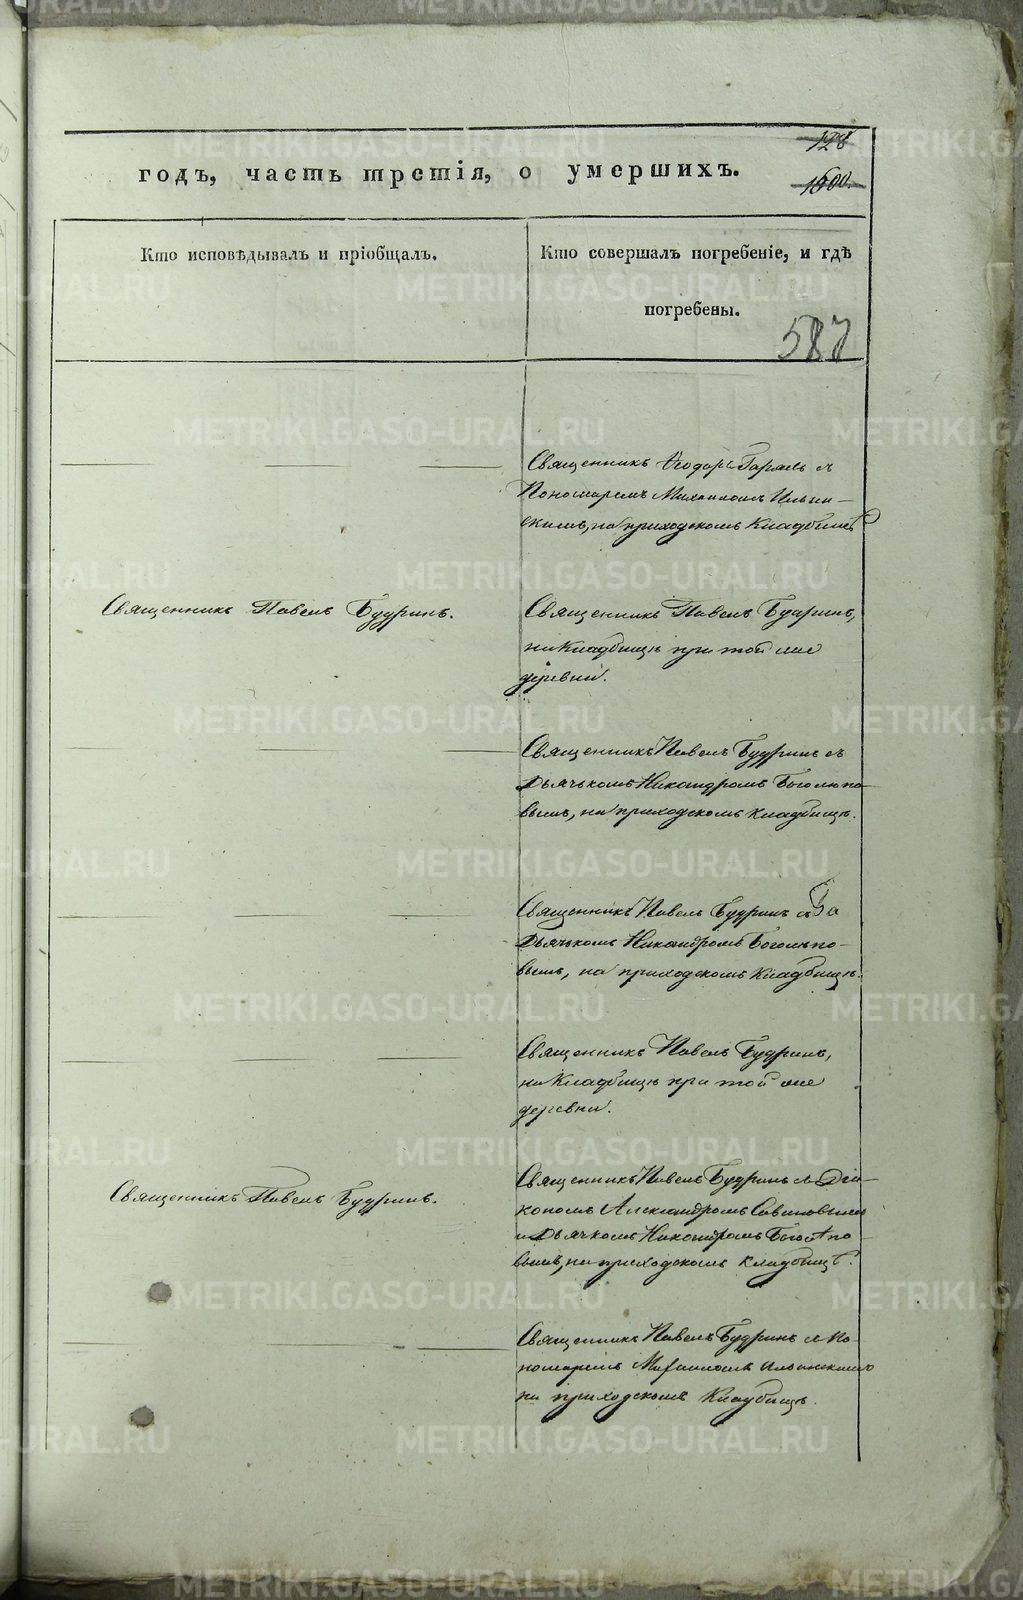 128
1600.
годъ, часть третія, о умершихъ.
Кто исповѣдывалъ и пріобщалъ.
Кто совершалъ погребеніе, и гдѣ
погребены.
587
Священникъ Ѳеодоръ съ
Пономаремъ Михаиломъ Ильин-
скимъ, на приходскомъ Кладбищѣ
Священникъ Павелъ Будринъ.
Священникъ Павелъ Будринъ,
на Кладбищѣ при той же
деревни.
Священникъ Павелъ Будринъ съ
Дьячкомъ Никандромъ Боголѣпо-
вымъ, на приходскомъ кладбищѣ.
Священникъ Павелъ Будринъ съ
Дьячкомъ Никандромъ Боголѣпо-
вымъ, на приходскомъ Кладбищѣ.
Священникъ Павелъ Будринъ,
на Кладбищѣ при той же
деревни.
Священникъ Павелъ Будринъ.
Священникъ Павелъ Будринъ съ Діа-
кономъ Александромъ Савиновымъ
и Дьячкомъ Никандромъ Боголѣпо-
вымъ, на приходскомъ кладбищѣ.
Священникъ Павелъ Будринъ съ По-
номаремъ Михаиломъ Ильинскимъ
на приходскомъ Кладбищѣ.
METRIKI.GASO-URAL.RU